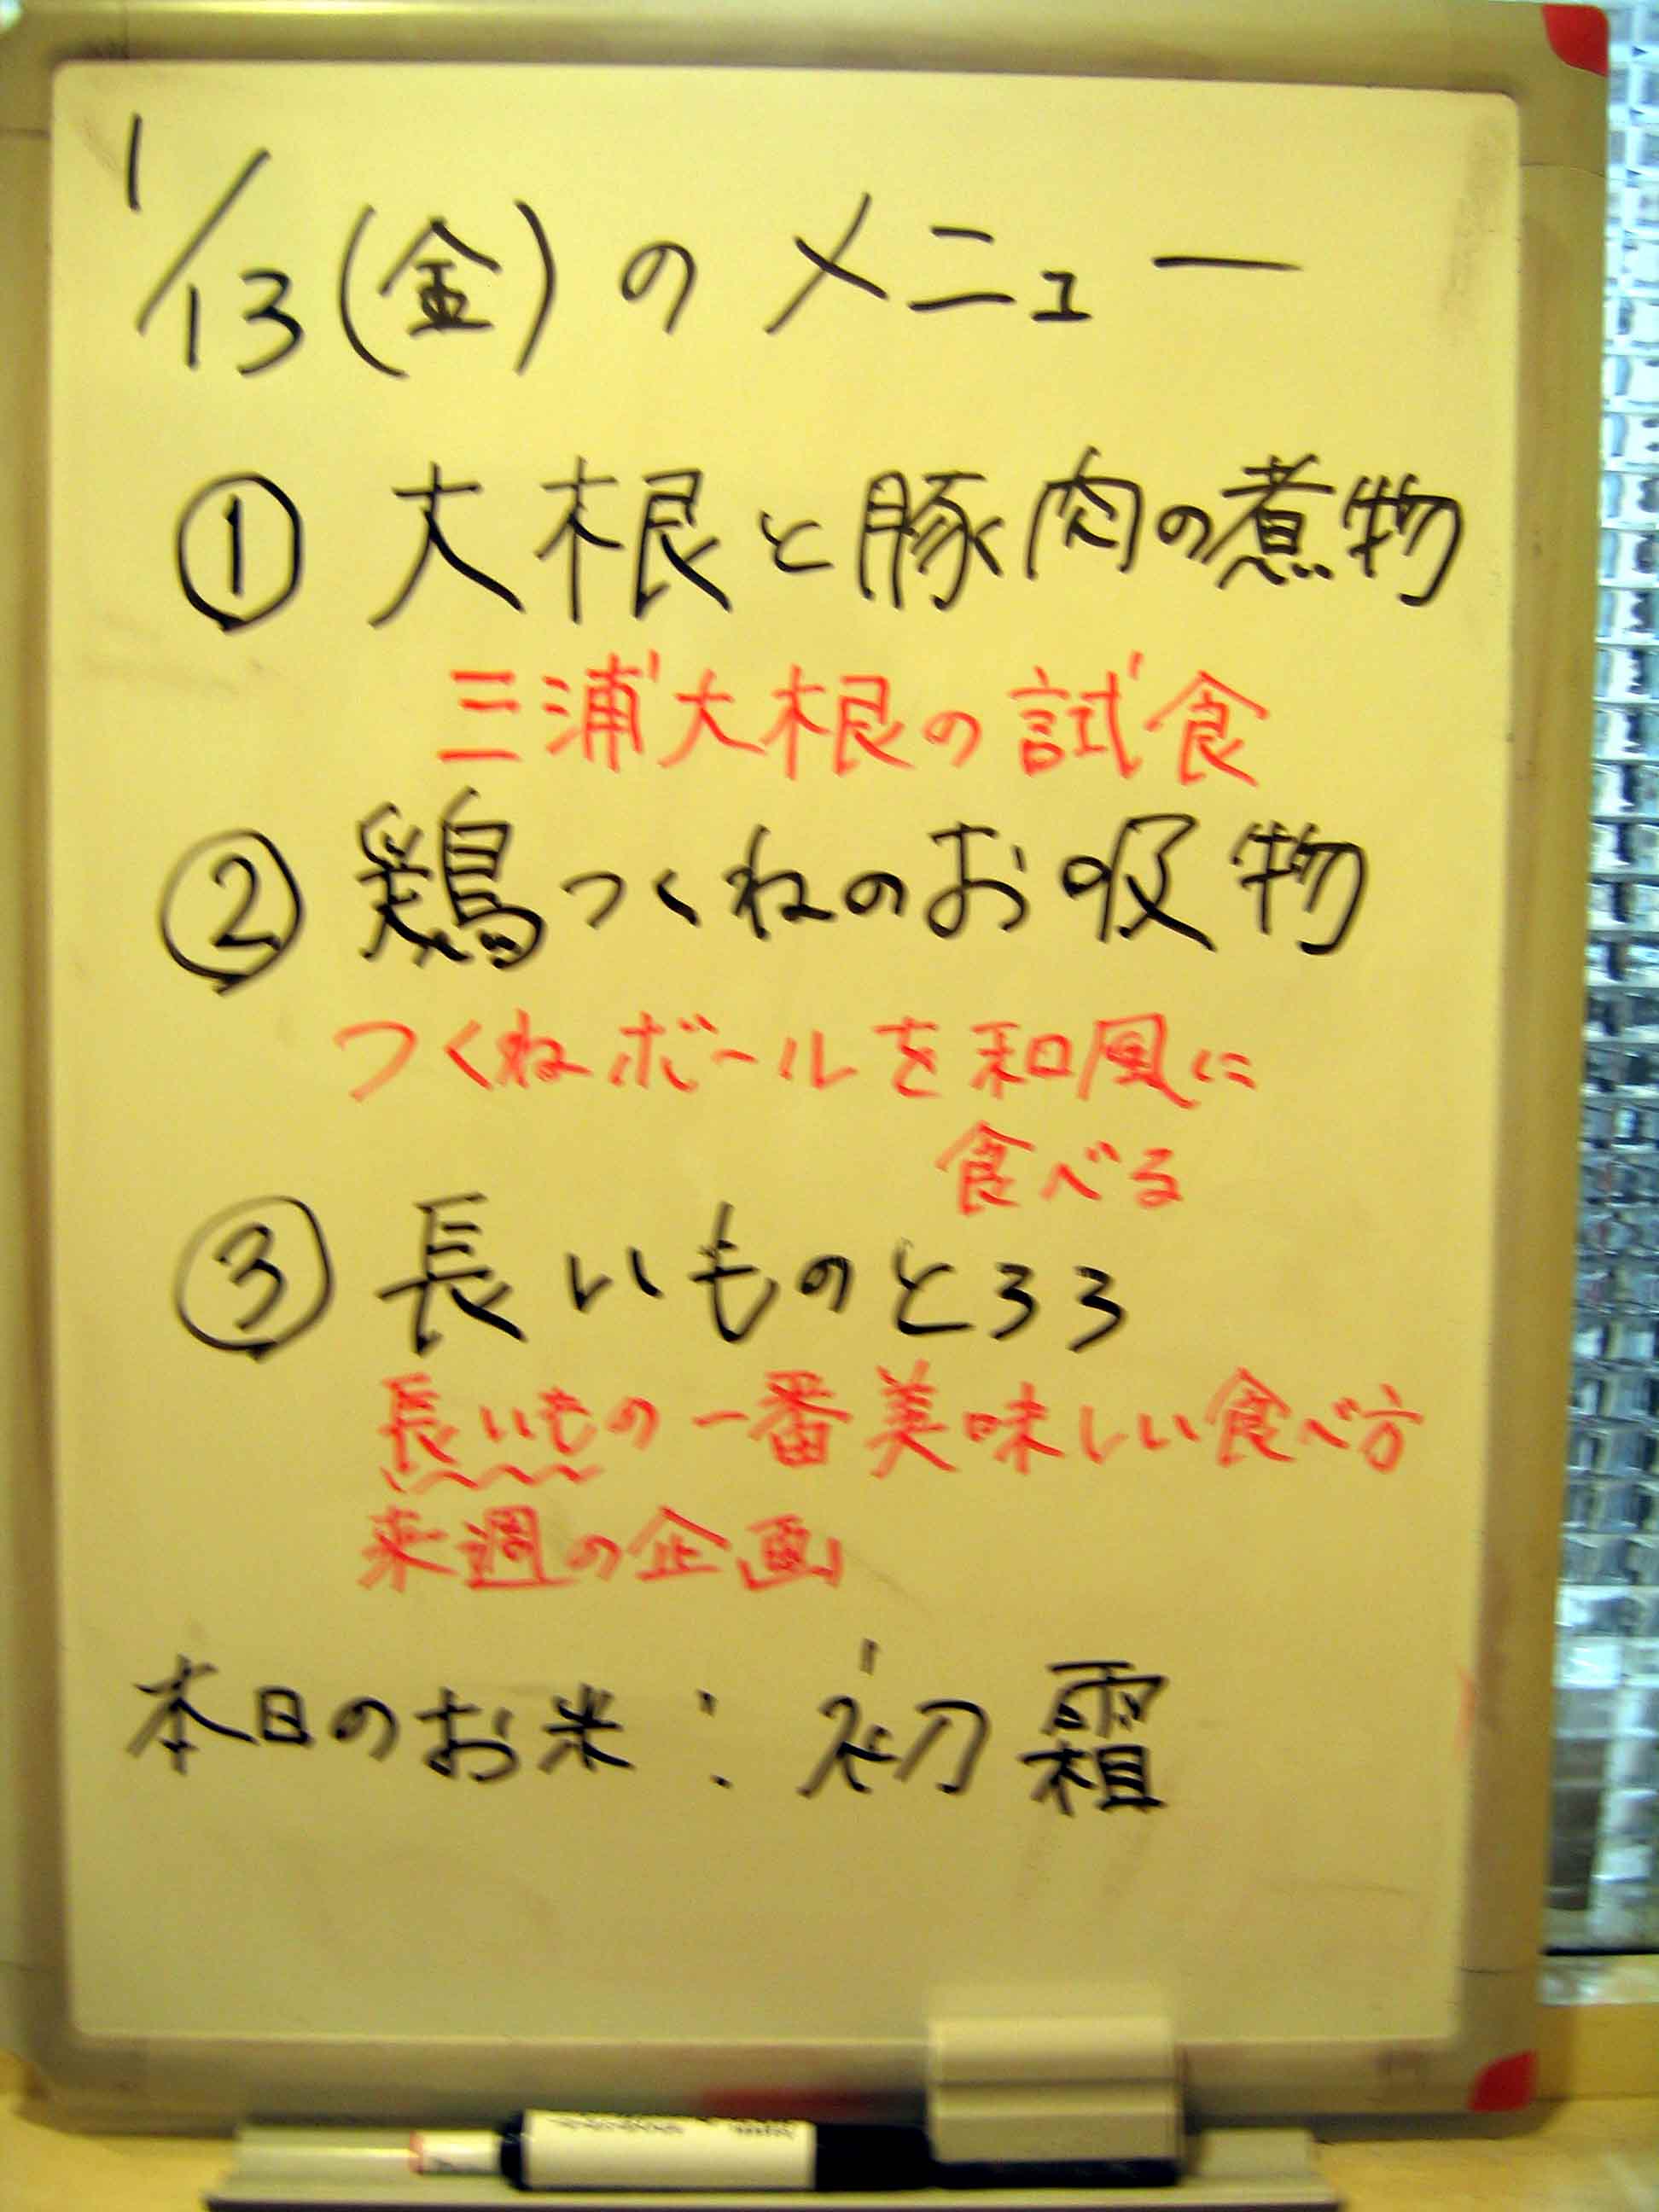 1/13(金)のメニュー
① 大根と豚肉の煮物
三浦大根の試食
② 鶏つくねのお吸物
つくねボールを和風に
食べる
③ 長いものとろろ
長いもの一番美味しい食べ方
来週の企画
本日のお米：初霜